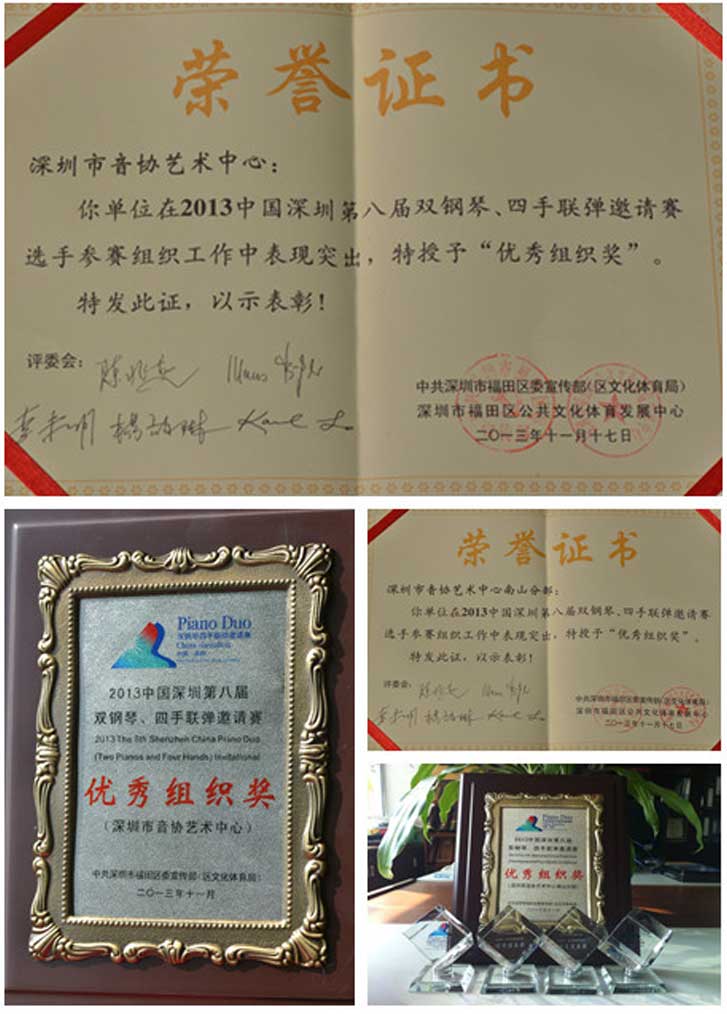 荣誉证书
深圳市音协艺术中心：
你单位在2013中国深圳第八届双钢琴、四手联弹邀请赛
选手参赛组织工作中表现突出，特授予“优秀组织奖”。
特发此证，以示表彰！
评委会：
中共深圳市福田区委宣传部(区文化体育局)
深圳市福田区公共文化体育发展中心
二〇一三年十一月十七日
Piano Duo
双钢琴四手联弹邀请赛
中国·深圳
2013中国深圳第八届
双钢琴、四手联弹邀请赛
2013 The 8th Shenzhen China Piano Duo
(Two Pianos and Four Hands) Invitational
优秀组织奖
(深圳市音协艺术中心)
中共深圳市福田区委宣传部(区文化体育局)
二〇一三年十一月
荣誉证书
深圳市音协艺术中心南山分部：
你单位在2013中国深圳第八届双钢琴、四手联弹邀请赛
选手参赛组织工作中表现突出，特授予“优秀组织奖”。
特发此证，以示表彰！
评委会：
中共深圳市福田区委宣传部(区文化体育局)
深圳市福田区公共文化体育发展中心
二〇一三年十一月十七日
Piano Duo
2013中国深圳第八届
双钢琴、四手联弹邀请赛
优秀组织奖